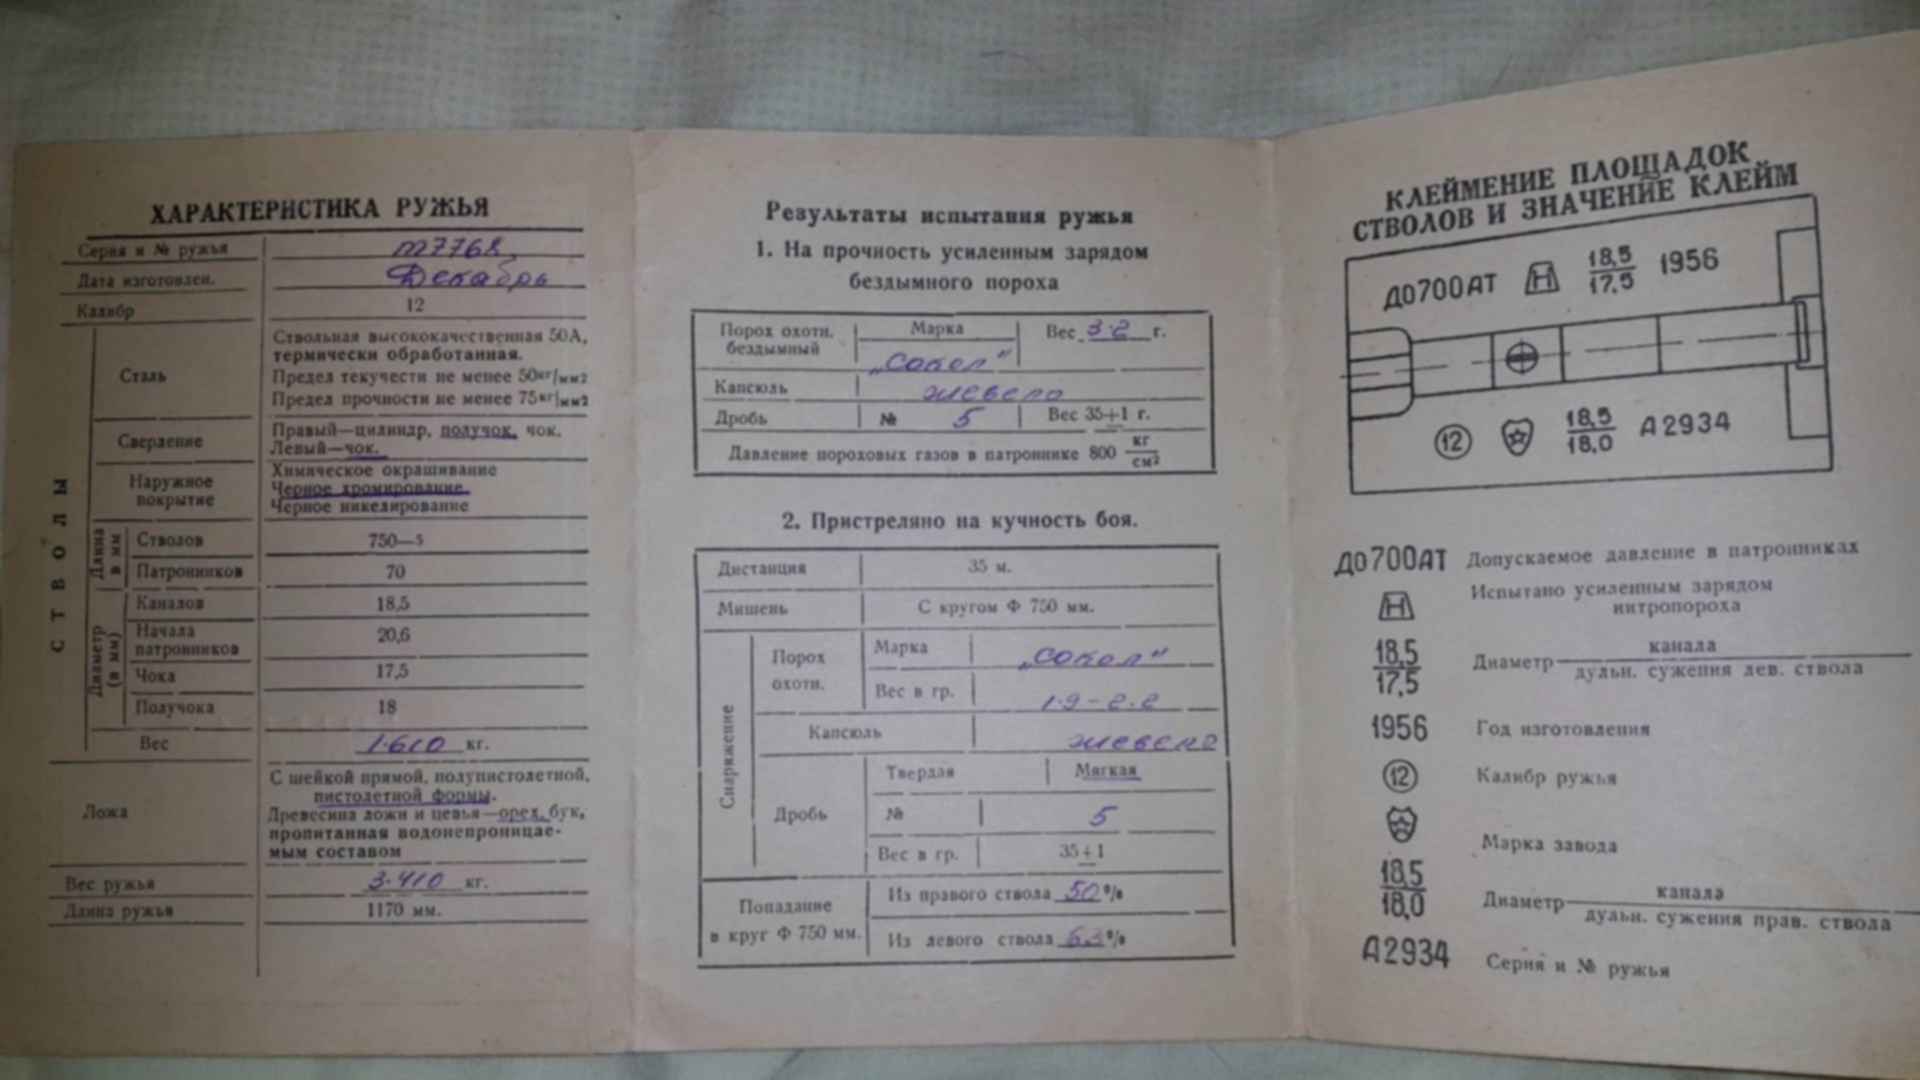 ХАРАКТЕРИСТИКА РУЖЬЯ
Серия и № ружья
Дата изготовлен. Декабрь
Калибр 12
СТВОЛЫ
Сталь
Ствольная высококачественная 50А,
термически обработанная.
Предел текучести не менее 50 кг/мм2
Предел прочности не менее 75 кг/мм2
Сверление
Правый—цилиндр, получок, чок.
Левый—чок.
Наружное покрытие
Химическое окрашивание
Черное хромирование
Черное никелирование
Длина в мм
Стволов 750—5
Патронников 70
Диаметр (в мм)
Каналов 18,5
Начала патронников 20,6
Чока 17,5
Получока 18
Вес 1.610 кг.
Ложа
С шейкой прямой, полупистолетной,
пистолетной формы.
Древесина ложи и цевья—орех, бук,
пропитанная водонепроницае-
мым составом
Вес ружья 3.410 кг.
Длина ружья 1170 мм.
Результаты испытания ружья
1. На прочность усиленным зарядом
бездымного пороха
Порох охотн. бездымный Марка „Сокол" Вес 3.2 г.
Капсюль жевело
Дробь № 5 Вес 35+1 г.
Давление пороховых газов в патроннике 800 кг/см2
2. Пристреляно на кучность боя.
Дистанция 35 м.
Мишень С кругом Ф 750 мм.
Снаряжение
Порох охотн.
Марка „Сокол"
Вес в гр. 1.9-2.2
Капсюль жевело
Дробь
Твердая Мягкая
№ 5
Вес в гр. 35+1
Попадание
в круг Ф 750 мм.
Из правого ствола 50%
Из левого ствола 63%
КЛЕЙМЕНИЕ ПЛОЩАДОК
СТВОЛОВ И ЗНАЧЕНИЕ КЛЕЙМ
Д0700АТ Н 18,5/17,5 1956
12 18,5/18,0 А2934
Д0700АТ Допускаемое давление в патронниках
Н Испытано усиленным зарядом
нитропороха
18,5/17,5 Диаметр канала/дульн. сужения лев. ствола
1956 Год изготовления
12 Калибр ружья
Марка завода
18,5/18,0 Диаметр канала/дульн. сужения прав. ствола
А2934 Серия и № ружья